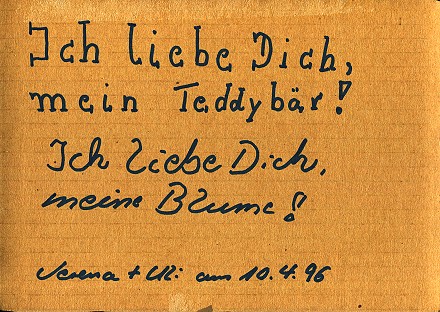 Ich liebe Dich,
mein Teddybär!
Ich liebe Dich,
meine Blume!
Verena + Uli am 10.4.96